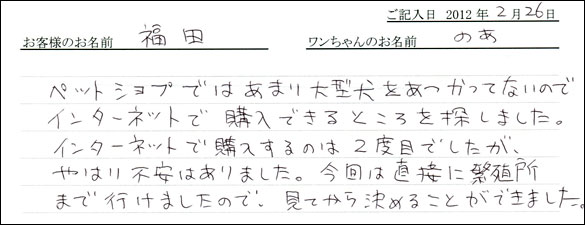 ご記入日 2012年2月26日
お客様のお名前 福田 ワンちゃんのお名前 のあ
ペットショプではあまり大型犬をあつかってないので
インターネットで購入できるところを探しました。
インターネットで購入するのは2度目でしたが、
やはり不安はありました。今回は直接に繁殖所
まで行けましたので、見てから決めることができました。